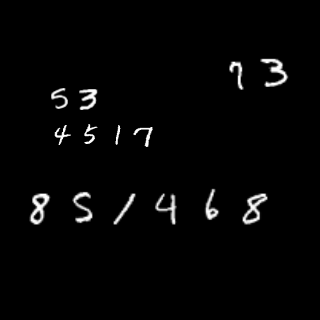 73
53
4517
851468